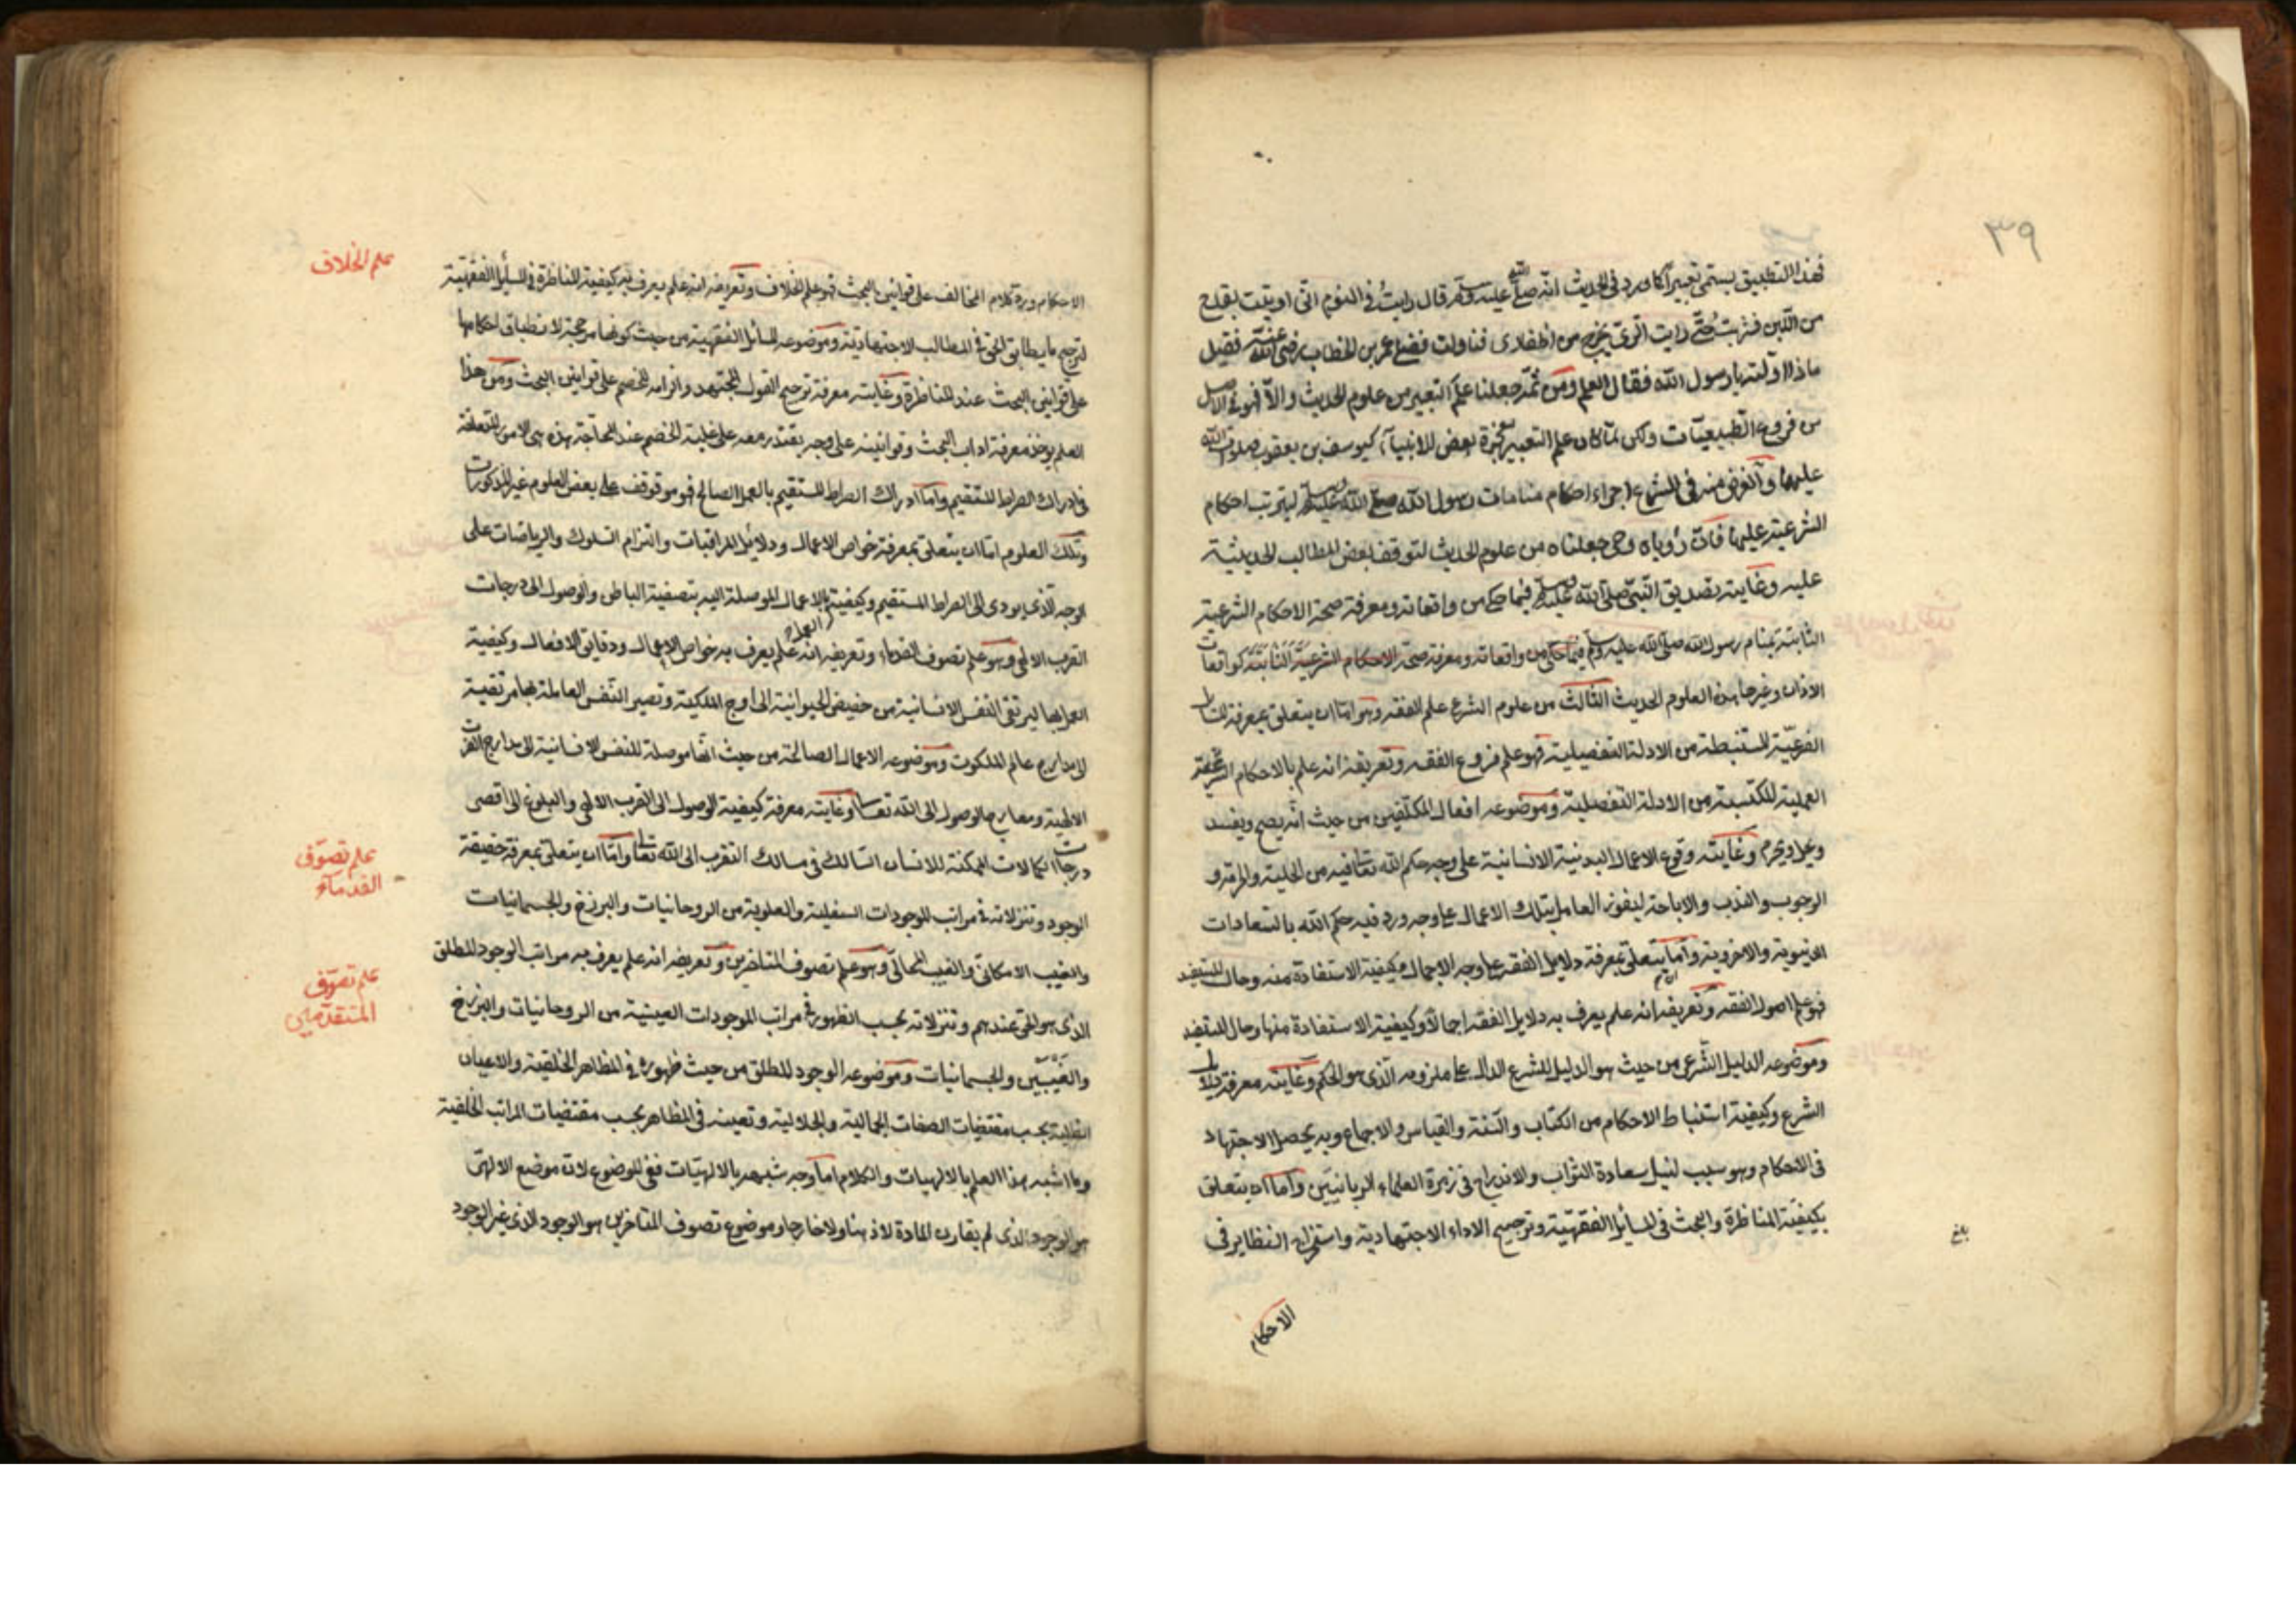 ٣٩
فهذا التطبيق يسمى تعبيرا كما ورد في الحديث انه صلى الله عليه وسلم قال رايت في النوم اني اوتيت بقدح
من اللبن فشربت حتى رايت الري يخرج من اظفارى فناولت فضلي عمر بن الخطاب رضي الله عنه فقيل
ماذا اولته يا رسول الله فقال العلم ومن ثمه جعلنا علم التعبير من علوم الحديث والا فهو في الاصل
من فروع الطبيعيات ولكن لما كان علم التعبير معجزة لبعض الانبياء كيوسف بن يعقوب صلوات الله
عليهما والغرض منه في الشرع اجراء احكام منامات رسول الله صلى الله عليه وسلم ليترتب احكام
الشرعية عليها فان رؤياه وحى جعلناه من علوم الحديث لتوقف بعض المطالب الحديثية
عليه وغايته تصديق النبي صلى الله عليه وسلم فيما حكى من واقعاته ومعرفة صحة الاحكام الشرعية
الثابتة بمنام رسول الله صلى الله عليه وسلم فيما حكى من واقعاته ومعرفة صحة الاحكام الشرعية الثابتة كواقعات
الاذان وغيرها هذه العلوم الحديث الثالث من علوم الشرع علم الفقه وهو اما ان يتعلق بمعرفة المسايل
الفرعية المستنبطة من الادلة التفصيلية فهو علم فروع الفقه وتعريفه انه علم بالاحكام الشرعية
العملية المكتسبة من الادلة التفصيلية وموضوعه افعال المكلفين من حيث انه يصح ويفسد
ويحل ويحرم وغايته وقوع الاعمال البدنية الانسانية على وجه حكم الله تعالى فيه من الحلية والحرمة و
الوجوب والندب والاباحة ليفوز العامل بتلك الاعمال على وجه ورد فيه حكم الله بالسعادات
الدنيوية والاخروية واما يتعلق بمعرفة دلايل الفقه على وجه الاجمال وكيفية الاستفادة منه وحال المستفيد
فهو علم اصول الفقه وتعريفه انه علم يعرف به دلايل الفقه اجمالا وكيفية الاستفادة منها وحال المستفيد
وموضوعه الدليل الشرعي من حيث هو الدليل للشرع الدال على ملزومه الذى هو الحكم وغايته معرفة دلايل
الشرع وكيفية استنباط الاحكام من الكتاب والسنة والقياس والاجماع وبه يحصل الاجتهاد
في الاحكام وهو سبب لنيل سعادة الثواب والاندراج في زمرة العلماء الربانيين واما ان يتعلق
بكيفية المناظرة والبحث في المسائل الفقهية وترجيح الاداء الاجتهادية واستخراج النظاير في
بلغ
الاحكام
علم الخلاف
الاحكام ورد كلام المخالف على قوانين البحث فهو علم الخلاف وتعريفه انه علم يعرف به كيفية المناظرة في المسايل الفقهية
لترجيح ما يطابق الحق في المطالب الاجتهادية وموضوعه المسائل الفقهية من حيث كونها مرجحة لانطباق احكامها
على قوانين البحث عند المناظرة وغايته معرفة ترجيح القول المجتهد والزامه للخصم على قوانين البحث ومن هذا
العلم يوخذ معرفة اداب البحث وقوانينه على وجه يقتدر معه على غلبة الخصم عند المحاجة هذه هى الامور المتعلقة
في ادراك الصراط المستقيم واما ادراك الصراط المستقيم بالعمل الصالح فهو موقوف على بعض العلوم غير المذكورات
وتلك العلوم اما ان يتعلق بمعرفة خواص الاعمال ودلائل المراقبات والتزام السلوك والرياضات على
الوجه الذى يودى الى الصراط المستقيم وكيفية الاعمال الموصلة اليه بتصفية الباطن والوصول الى درجات
القرب الالهي وهو علم تصوف القدماء وتعريفه انه علم يعرف به خواص الاعمال ودقايق الافعال وكيفية
العمل بها ليرتقى النفس الانسانية من حضيض الحيوانية الى اوج الملكية وتصير النفس العاملة بها مرتقية
الى مدارج عالم الملكوت وموضوعه الاعمال الصالحة من حيث انها موصلة للنفس الانسانية الى مدارج القربات
الالهية ومعارج الوصول الى الله تعالى وغايته معرفة كيفية الوصول الى القرب الالهي والبلوغ الى اقصى
درجات الكمالات الممكنة للانسان السالك في مسالك التقرب الى الله تعالى واما ان يتعلق بمعرفة حقيقة
علم تصوف
القدماء
الوجود وتنزلاته في مراتب الموجودات السفلية والعلوية من الروحانيات والبرزخ والجسمانيات
والغيب الامكانى والغيب المحالى وهو علم تصوف المتاخرين وتعريفه انه علم يعرف به مراتب الوجود المطلق
علم تصوف
المتقدمين
الذى هو الحق عندهم وتنزلاته بحسب الظهور في مراتب الموجودات العينية من الروحانيات والبرزخ
والغيبين والجسمانيات وموضوعه الوجود المطلق من حيث ظهوره في المظاهر الخلقية والاعيان
بحسب مقتضيات الصفات الجمالية والجلالية وتعينه في المظاهر بحسب مقتضيات المراتب الخلقية
وما اشبه هذا العلم بالالهيات والكلام اما وجه شبهه بالالهيات ففي الموضوع لان موضع الالهى
هو الوجود الذى لم يقارن المادة لا ذهنا ولا خارجا وموضوع تصوف المتاخرين هو الوجود الذى غير الوجود